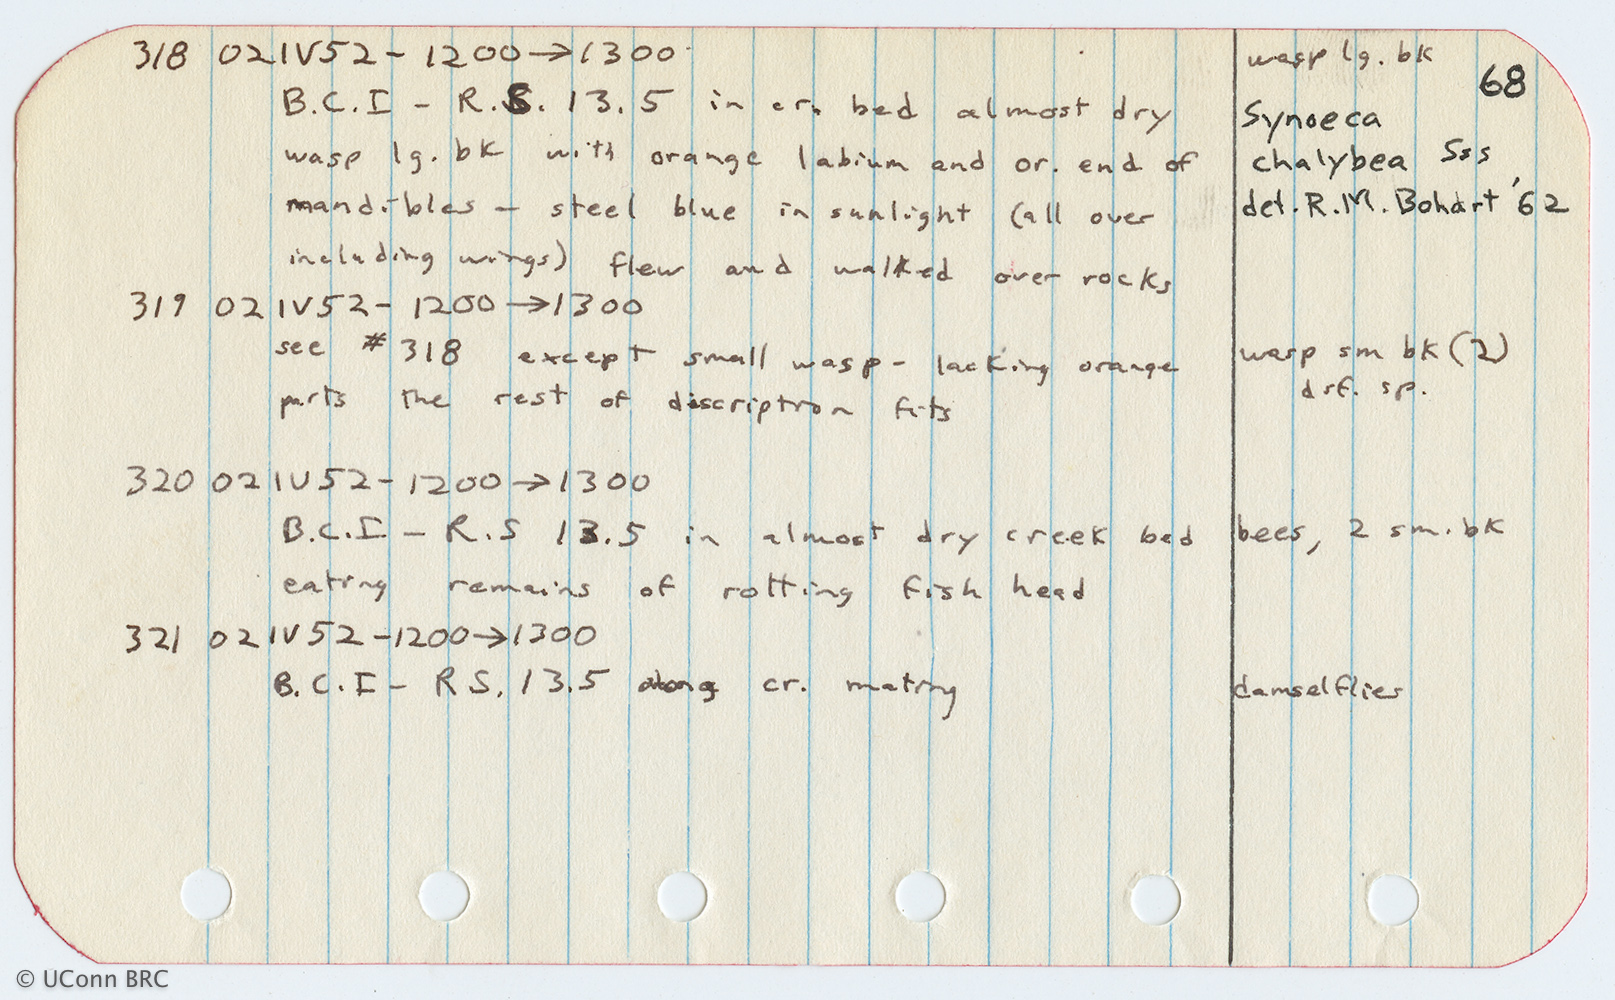 68
318 02IV52 - 1200→1300
wasp lg. bk
B.C.I - R.S. 13.5 in cr. bed almost dry
Synoeca
wasp lg. bk with orange labium and or. end of
chalybea Sss
mandibles - steel blue in sunlight (all over
det. R.M. Bohart '62
including wings) flew and walked over rocks
319 02IV52 - 1200→1300
see #318 except small wasp - lacking orange
wasp sm bk (2)
parts the rest of discription fits
dif. sp.
320 02IV52 - 1200→1300
B.C.I - R.S 13.5 in almost dry creek bed
bees, 2 sm. bk
eating remains of rotting fish head
321 02IV52 - 1200→1300
B.C.I - R.S. 13.5 along cr. mating
damselflies
© UConn BRC